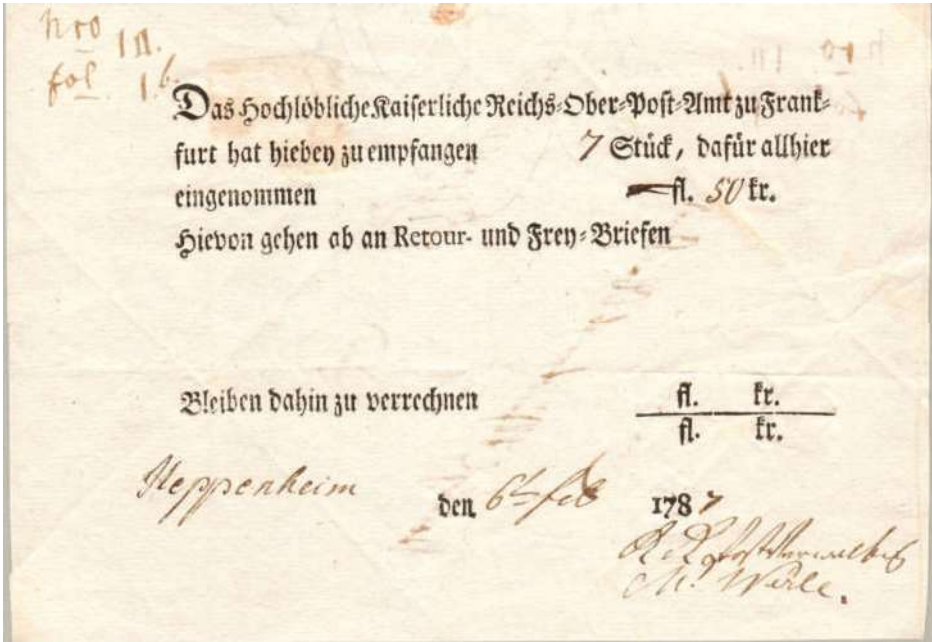 nro 1π.
fol. 1.6.
Das Hochlöbliche Kaiserliche Reichs-Ober-Post-Amt zu Frank-
furt hat hiebey zu empfangen 7 Stück, dafür allhier
eingenommen — fl. 50 kr.
Hievon gehen ab an Retour- und Frey-Briefen
Bleiben dahin zu verrechnen fl. kr.
fl. kr.
Heppenheim den 6t feb 1787
M. Werle.